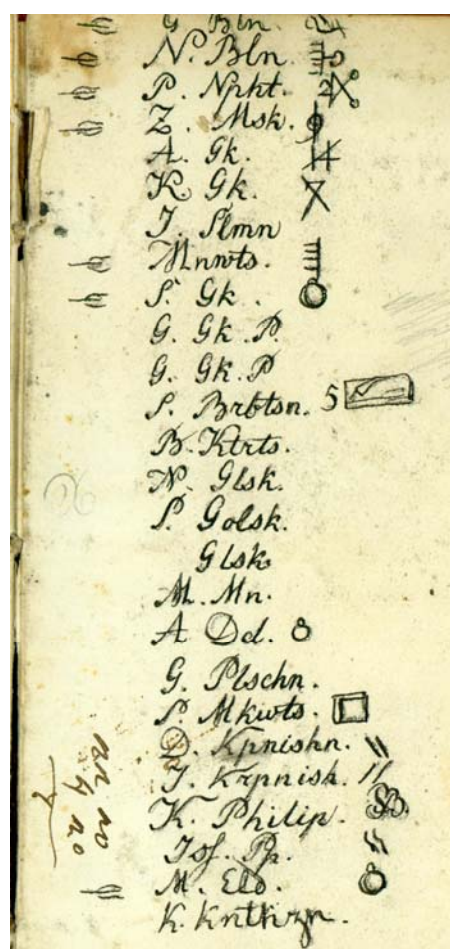 G. Bln.
N. Bln.
P. Npkt. 2
Z. Msk.
A. Gk.
K. Gk.
J. Slmn
Mnwts.
S. Gk.
G. Gk. P.
G. Gk. P
S. Brbtsn. 5
B. Ktrts.
N. Glsk.
P. Golsk.
Glsk.
M. Mn.
A. Del. 8
G. Plschn.
P. Mkwts.
D. Kpnishn. "
J. Krpnish. "
K. Philip. SB.
Jof. Pp. "
M. Eld.
K. Knthrzn.